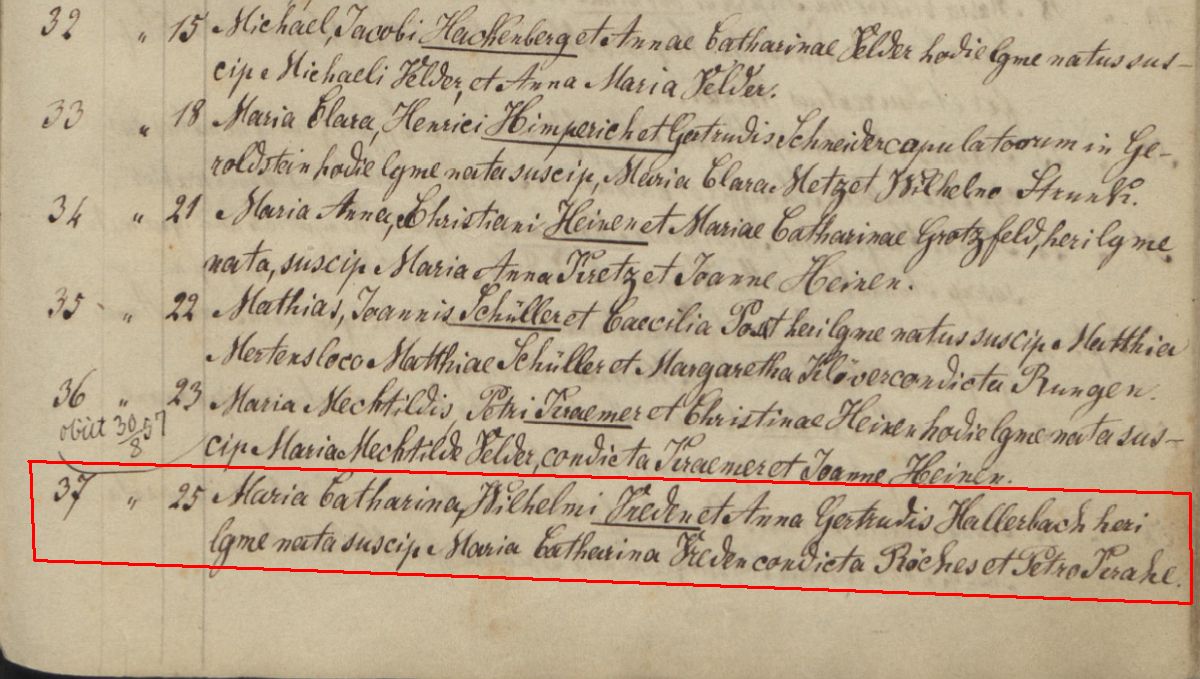 32 " 15 Michael, Jacobi Hackenberg et Annae Catharinae Velder hodie lgme natus sus-
cip. Michaeli Velder, et Anna Maria Velder.
33 " 18 Maria Clara, Henrici Himperich et Gertrudis Schneider copulatorum in Ge-
roldstein hodie lgme nata suscip, Maria Clara Metz et Wilhelmo Strunk.
34 " 21 Maria Anna, Christiani Heinen et Mariae Catharinae Grotzfeld, heri lgme
nata, suscip Maria Anna Kretz et Joanne Heinen.
35 " 22 Mathias, Joannis Schüller et Caecilia Post heri lgme natus suscip. Matthia
Mertens loco Matthiae Schüller et Margaretha Klöver condicta Rungen.
36 " 23 Maria Mechtildis, Petri Kraemer et Christinae Heinen hodie lgme nata sus-
obiit 30/8 57 cip Maria Mechtilde Velder, condicta Kraemer et Joanne Heinen.
37 " 25 Maria Catharina, Wilhelmi Vreden et Anna Gertrudis Hallerbach heri
lgme nata suscip. Maria Catharina Vreden condicta Röches et Petro Krahe.